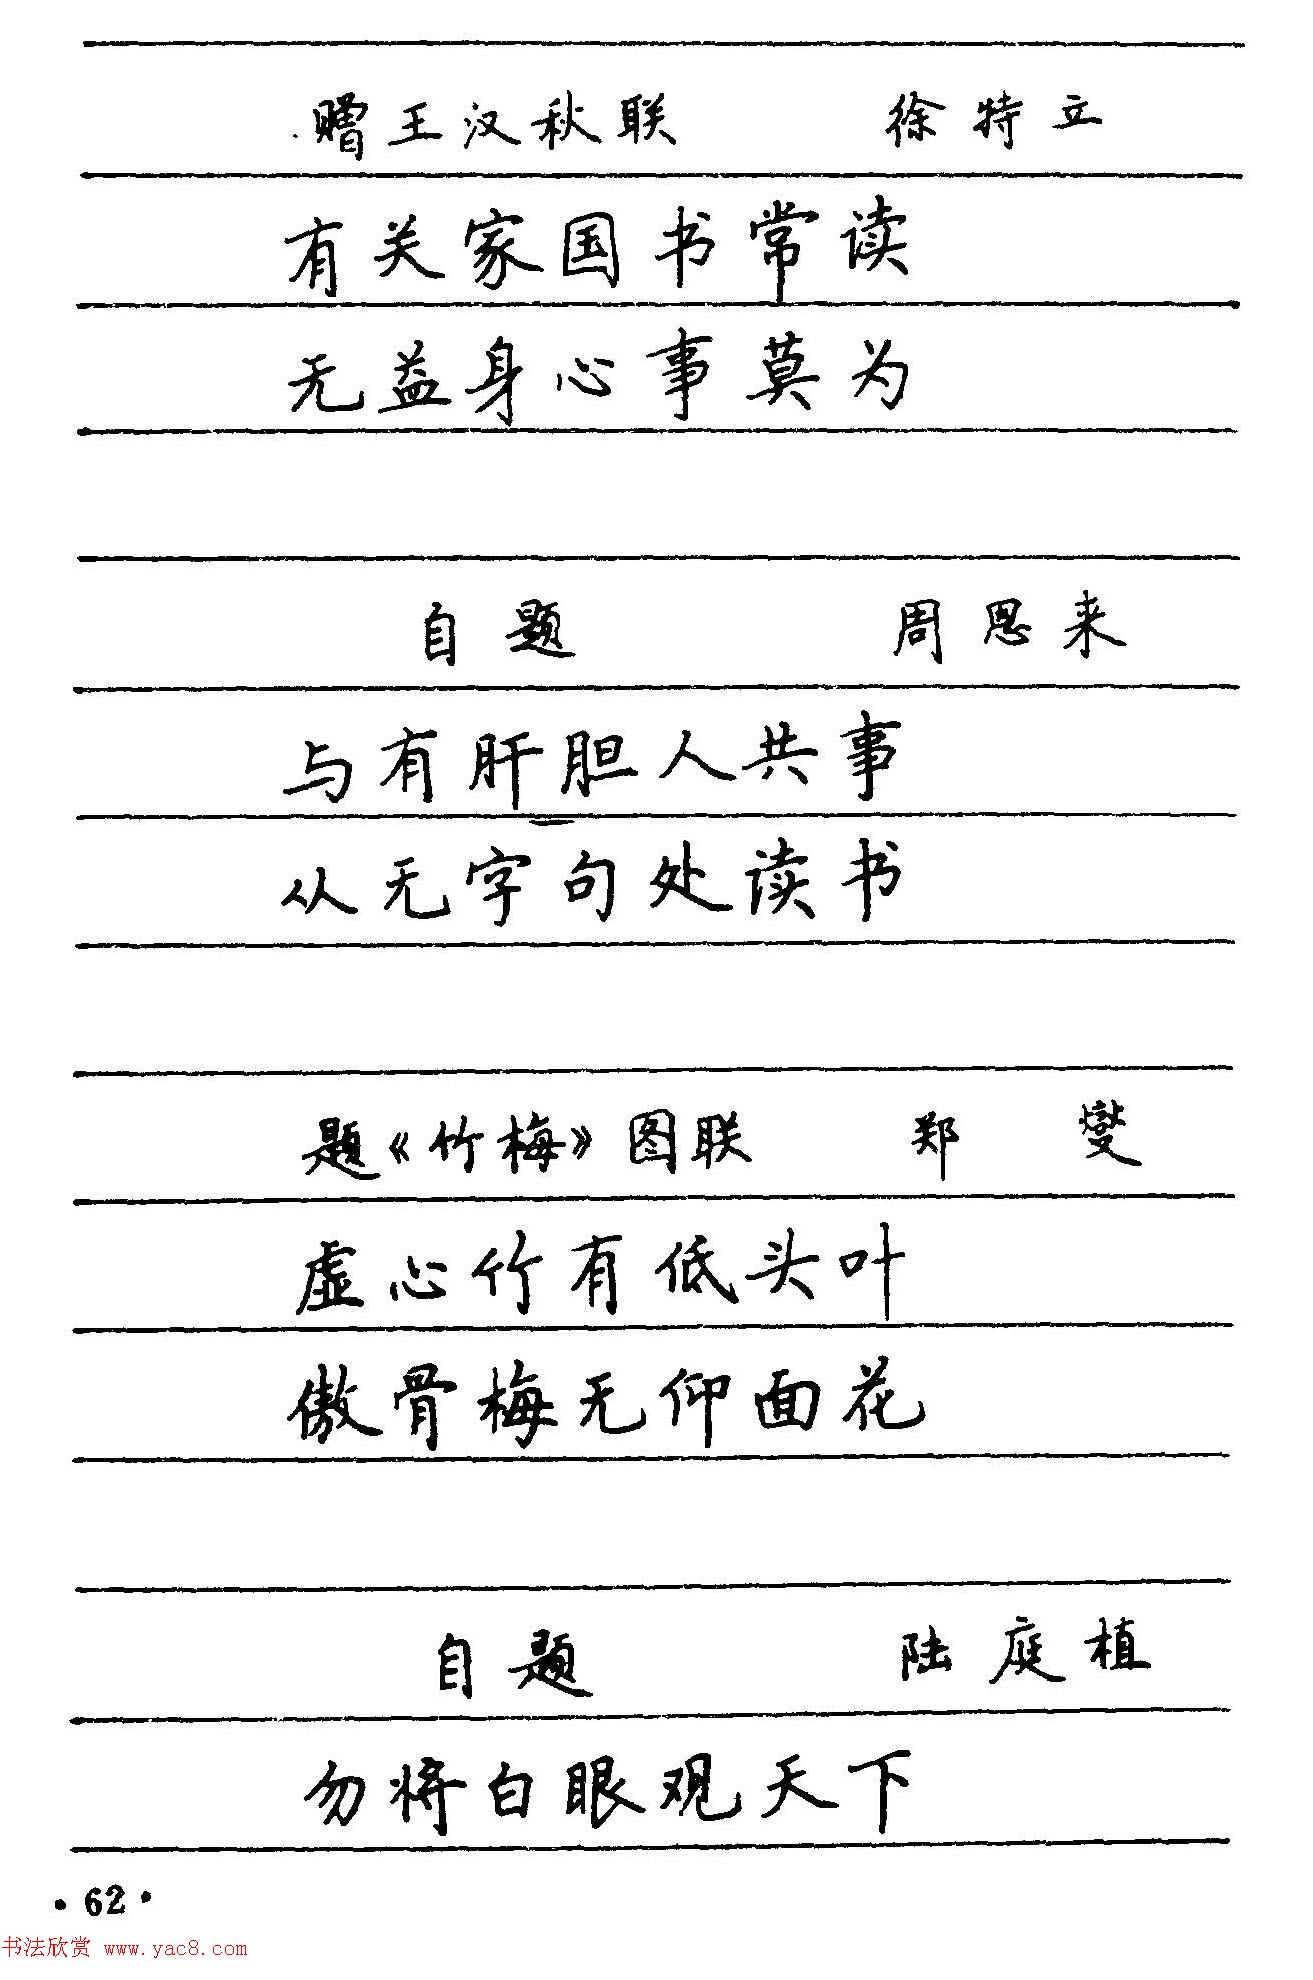 赠王汉秋联 徐特立
有关家国书常读
无益身心事莫为
自题 周恩来
与有肝胆人共事
从无字句处读书
题《竹梅》图联 郑燮
虚心竹有低头叶
傲骨梅无仰面花
自题 陆庭植
勿将白眼观天下
·62·
书法欣赏 www.yac8.com